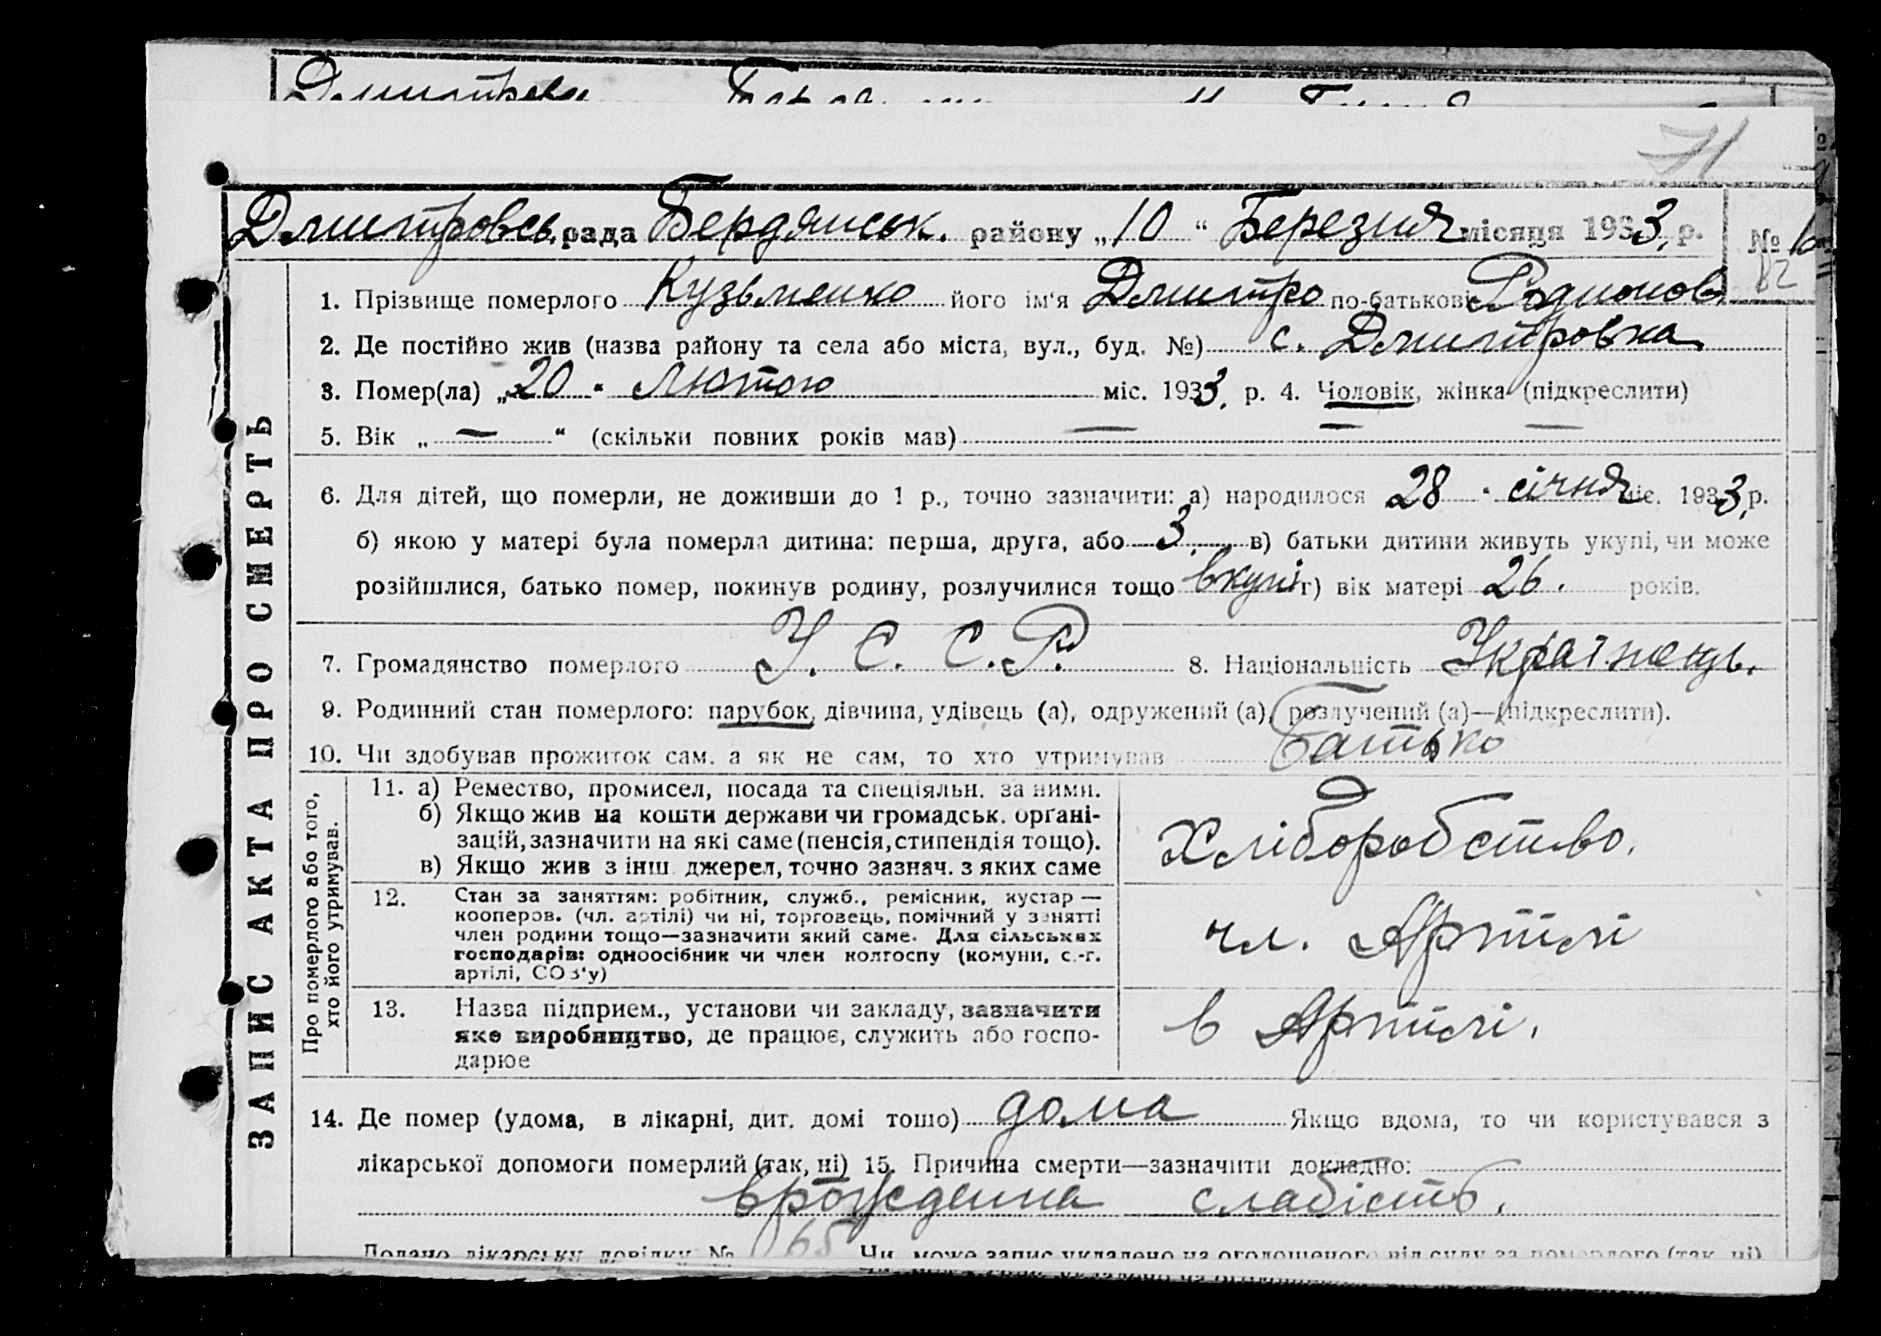 71
Дмитровсь. рада Бердянськ. району „10“ Березня місяця 1933 р. №
82
1. Прізвище померлого Кузьменко його ім'я Дмитро по-батькові Родионов
2. Де постійно жив (назва району та села або міста, вул., буд. №) с. Дмитровка
3. Помер(ла) „20“ Лютого міс. 1933 р. 4. Чоловік, жінка (підкреслити)
5. Вік „—“ (скільки повних років мав) — — —
6. Для дітей, що померли, не доживши до 1 р., точно зазначити: а) народилося 28 січня міс. 1933 р.
б) якою у матері була померла дитина: перша, друга, або 3. в) батьки дитини живуть укупі, чи може
розійшлися, батько помер, покинув родину, розлучилися тощо вкупі г) вік матері 26. років.
7. Громадянство померлого У. С. С. Р. 8. Національність Українець.
9. Родинний стан померлого: парубок, дівчина, удівець (а), одружений (а), розлучений (а)—(підкреслити).
10. Чи здобував прожиток сам. а як не сам, то хто утримував Батько
ЗАПИС АКТА ПРО СМЕРТЬ
Про померлого або того,
хто його утримував.
11. а) Ремество, промисел, посада та спеціяльн. за ними.
б) Якщо жив на кошти держави чи громадськ. орґані-
зацій, зазначити на які саме (пенсія, стипендія тощо).
в) Якщо жив з інш. джерел, точно зазнач. з яких саме
Хліборобство.
12. Стан за заняттям: робітник, служб., ремісник, кустар—
кооперов. (чл. артілі) чи ні, торговець, помічний у занятті
член родини тощо—зазначити який саме. Для сільських
господарів: одноосібник чи член колгоспу (комуни, с.-г.
артілі, СОЗ'у)
чл. Артілі
13. Назва підприєм., установи чи закладу, зазначити
яке виробництво, де працює, служить або госпо-
дарює
в Артілі.
14. Де помер (удома, в лікарні, дит. домі тощо) дома Якщо вдома, то чи користувався з
лікарської допомоги померлий (так, ні) 15. Причина смерти—зазначити докладно:
врожденна слабість.
Подано лікарську довідку № 65 Чи може запис укладено на оголошеного від суду за померлого (так, ні)